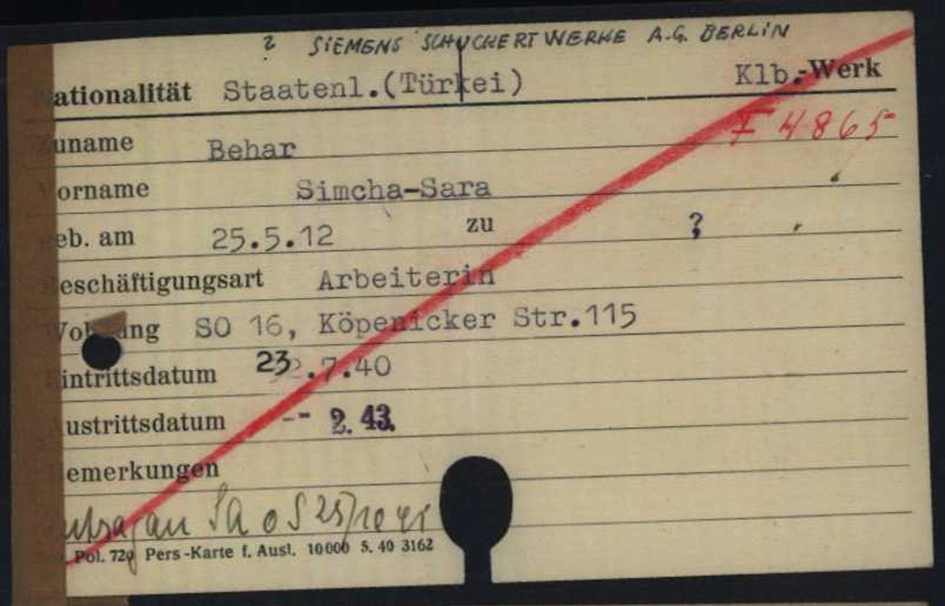 2 SIEMENS SCHUCKERT WERKE A.G. BERLIN
ationalität Staatenl.(Türkei) Klb.-Werk
uname Behar F 4865
orname Simcha-Sara
eb. am 25.5.12 zu ?
eschäftigungsart Arbeiterin
Wo ng SO 16, Köpenicker Str.115
intrittsdatum 23.7.40
ustrittsdatum -- 2. 43.
emerkungen
an SA o S 25/10 41
Pol. 729 Pers-Karte f. Ausl. 10000 5. 40 3162